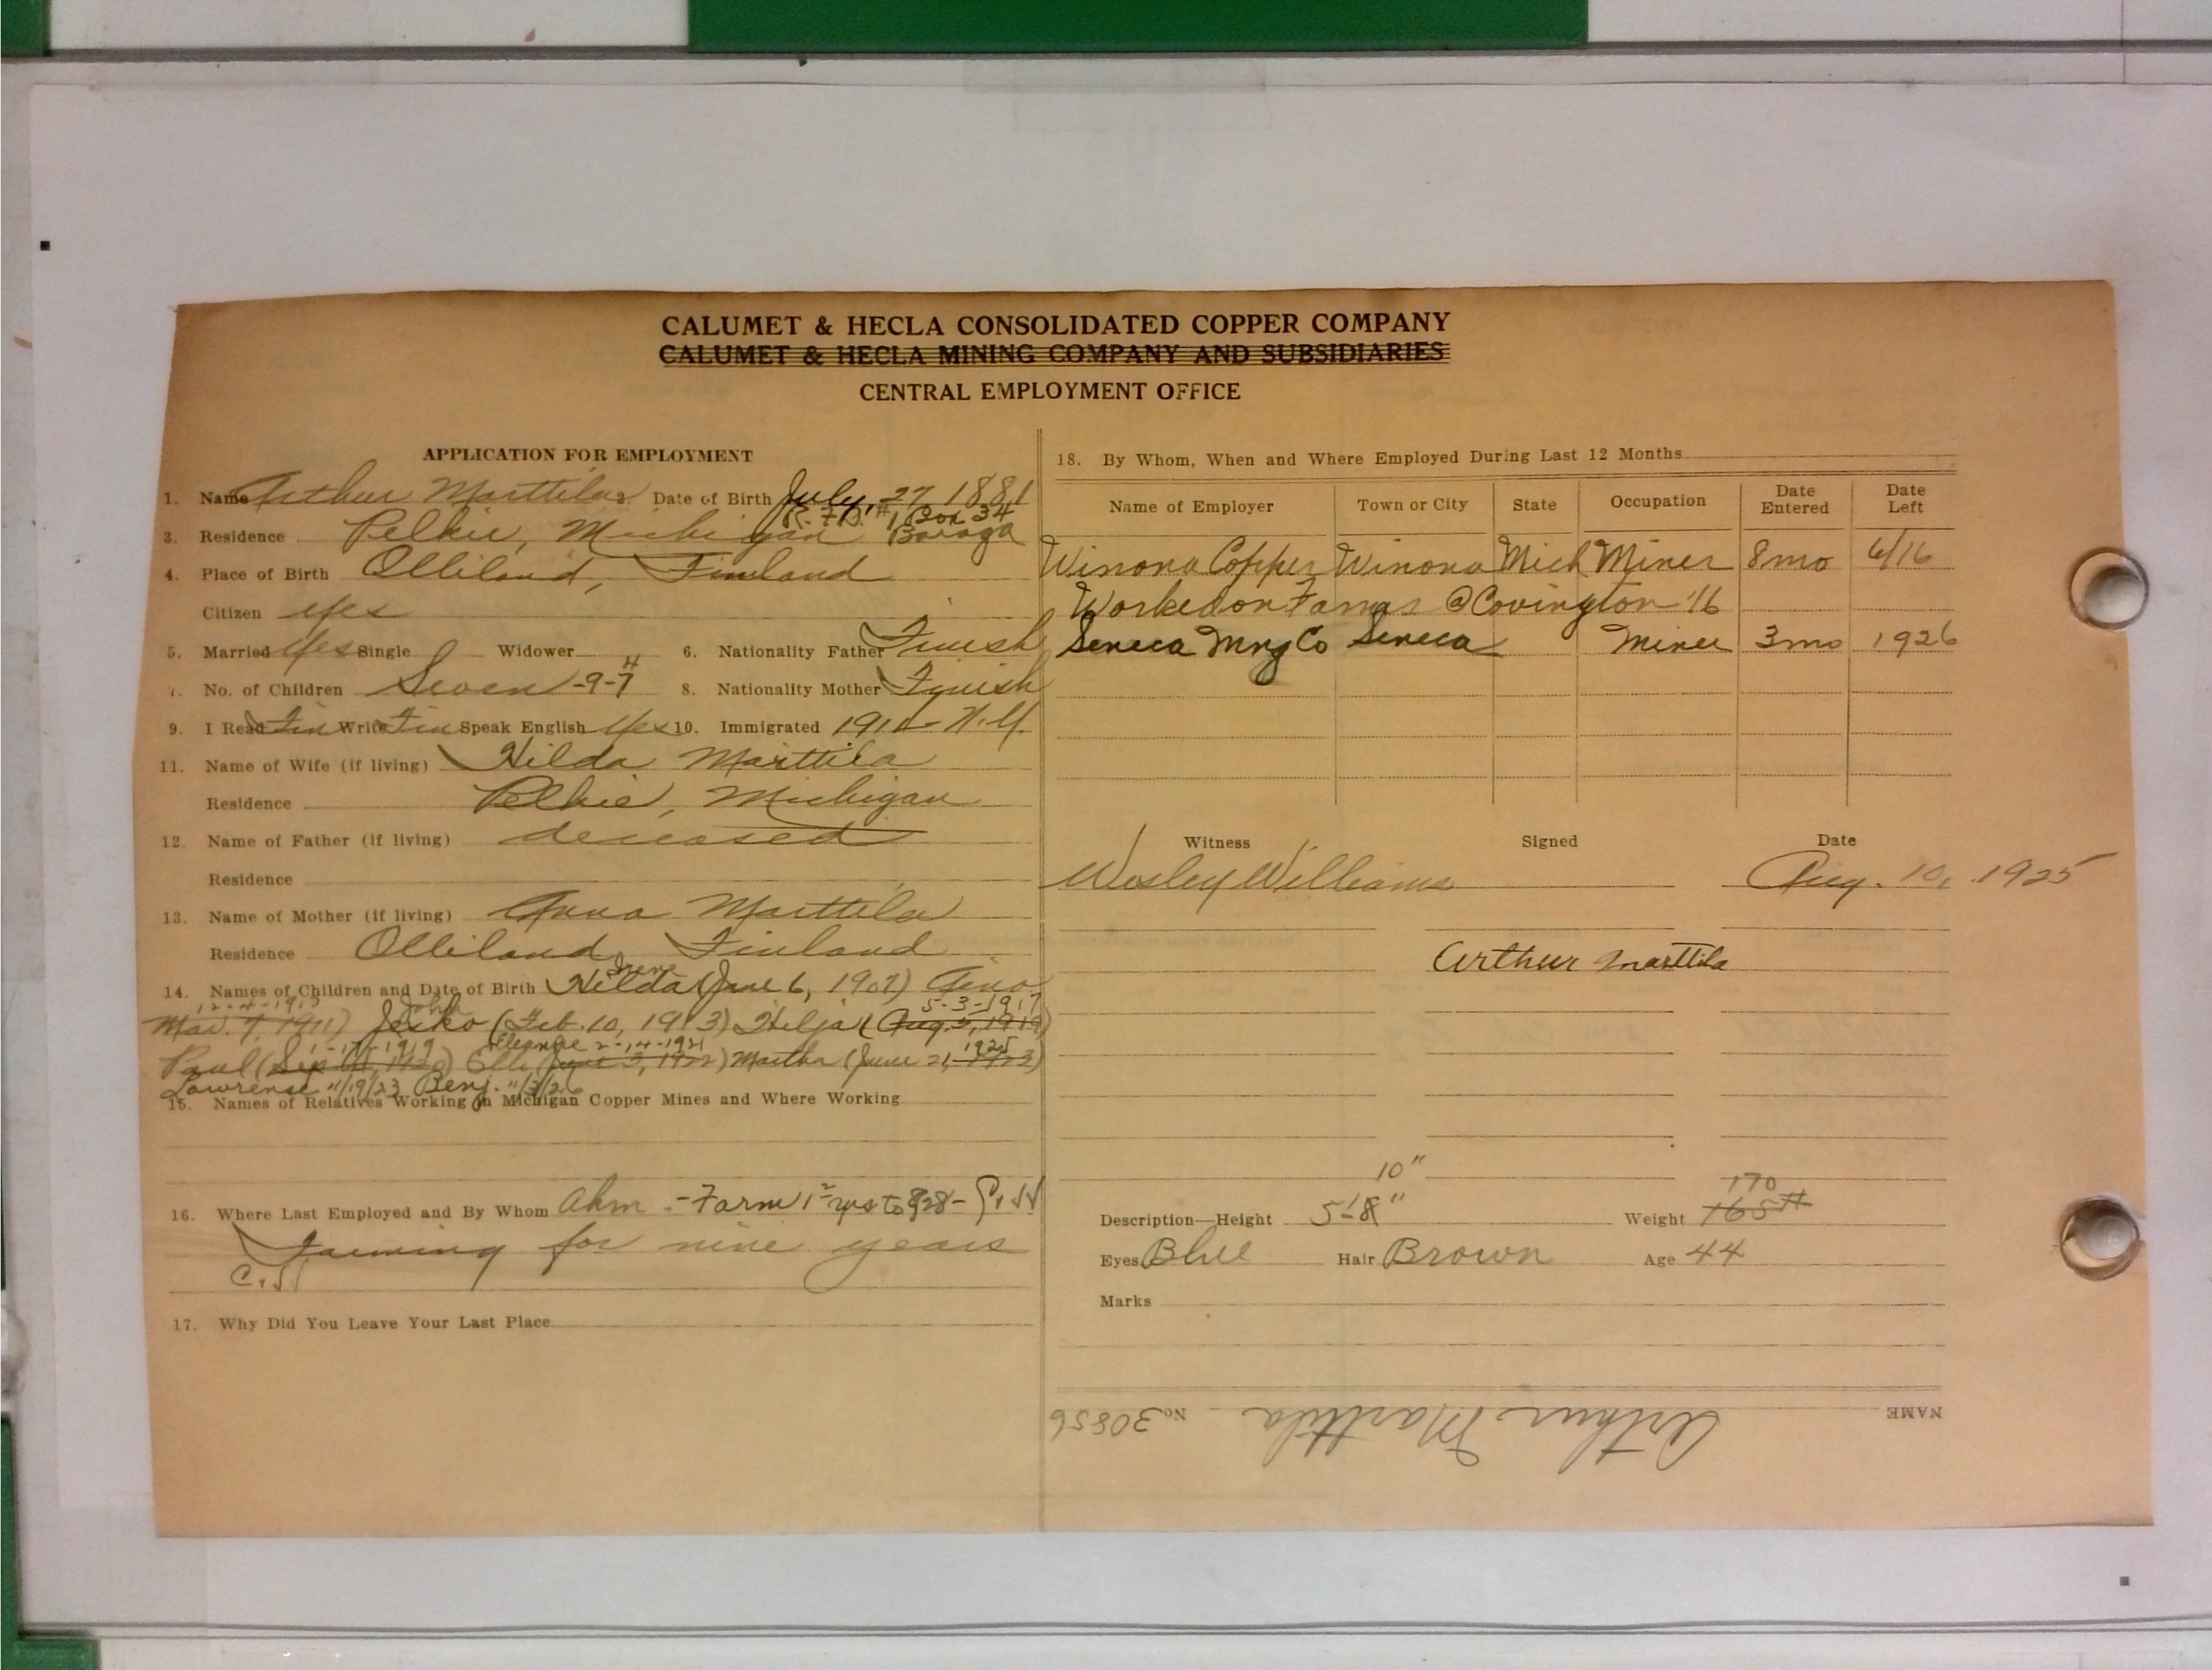 CALUMET & HECLA CONSOLIDATED COPPER COMPANY
CALUMET & HECLA MINING COMPANY AND SUBSIDIARIES
CENTRAL EMPLOYMENT OFFICE
APPLICATION FOR EMPLOYMENT
1. Name Arthur Marttila Date of Birth July, 27 1881
R.F.D. #1 Box 34
3. Residence Pelkie, Michigan Baraga
4. Place of Birth Olliland, Finland
Citizen Yes
5. Married Yes Single Widower 6. Nationality Father Finish
7. No. of Children Seven -9-7 4 8. Nationality Mother Finish
9. I Read Fin Write Fin Speak English Yes 10. Immigrated 1910 N.Y.
11. Name of Wife (if living) Hilda Marttila
Residence Pelkie, Michigan
12. Name of Father (if living) deceased
Residence
13. Name of Mother (if living) Anna Marttila
Residence Olliland, Finland
Irene
14. Names of Children and Date of Birth Hilda (June 6, 1907) Aino
12-4-1913 John 5-3-1917
Mar. 7, 1911) Jeiko (Feb. 10, 1913) Hilja (Aug. 5, 1919)
1-17-1919 Eleanore 2-14-1921 1925
Paul ( 1920) Elli (June 3, 1922) Martha (June 21, 1923)
Lawrense "/19/23 Benj. "/3/26
15. Names of Relatives Working in Michigan Copper Mines and Where Working
16. Where Last Employed and By Whom Ahm - Farm 1 2 yrs to 928 -
Farming for nine years
17. Why Did You Leave Your Last Place
18. By Whom, When and Where Employed During Last 12 Months
Name of Employer Town or City State Occupation Date Entered Date Left
Winona Copper Winona Mich Miner 8mo 6/16
Worked on Farms @ Covington '16
Seneca Mng Co Seneca Miner 3mo 1926
Witness Signed Date
Wesley Williams Aug. 10, 1925
Arthur Marttila
10" 170
Description—Height 5'-8" Weight 165#
Eyes Blue Hair Brown Age 44
Marks
NAME Arthur Marttila No. 30856